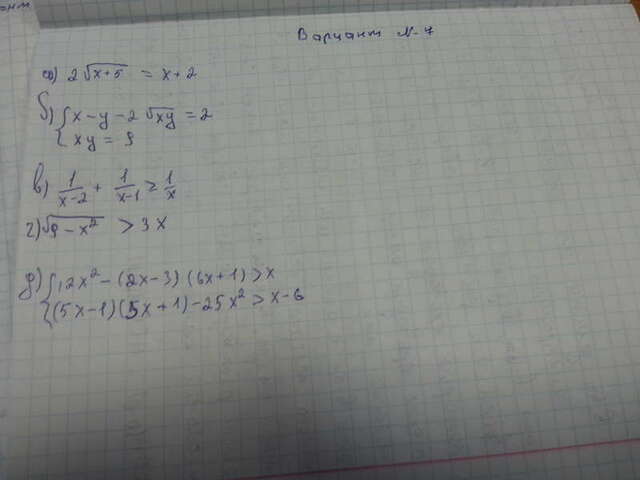 Вариант N-7
а) 2√(x+5) = x+2
б) { x - y - 2 √xy = 2
{ xy = 9
в) 1/(x-2) + 1/(x-1) ≥ 1/x
г) √(9-x²) > 3x
д) { 12x² - (2x-3)(6x+1) > x
{ (5x-1)(5x+1) - 25x² > x-6